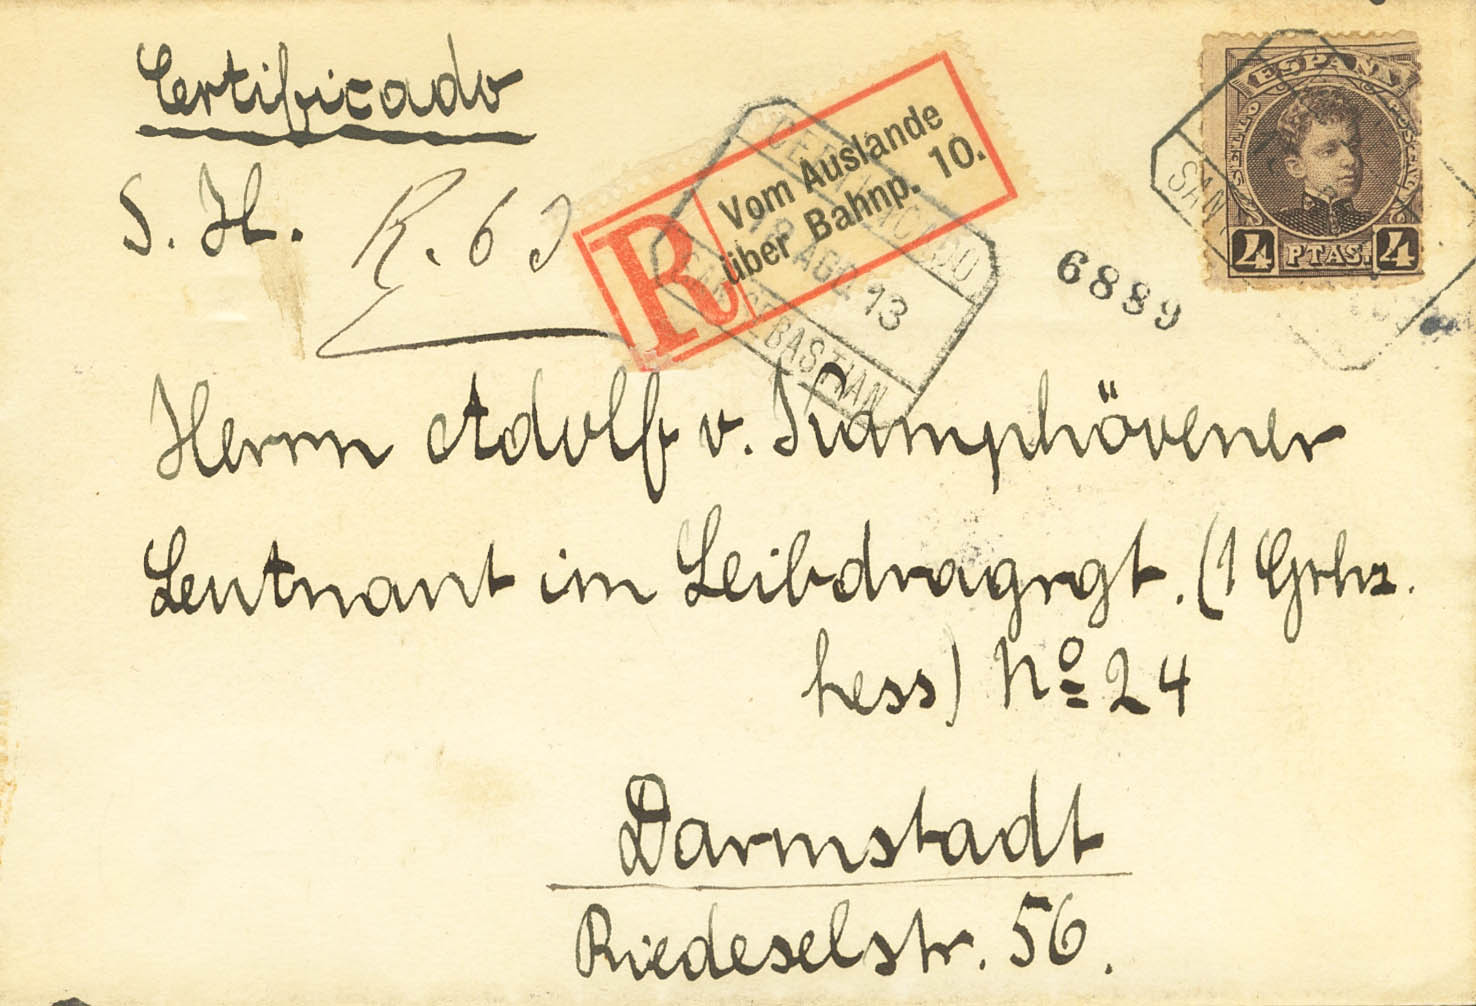 Certificado
S. H.
R. 63
R
Vom Auslande
über Bahnp. 10.
CERTIFICADO
12 AGO 13
SAN SEBASTIAN
6889
ESPAÑA
SELLO POSTAL
4 PTAS. 4
SAN
Herrn Adolf v. Kamphövener
Leutnant im Leibdragrgt. (1 Grhz.
hess) No 24
Darmstadt
Riedeselstr. 56.